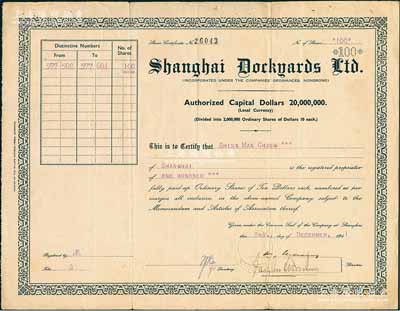 Share Certificate No 26043 No of Shares *100*
*100*
Distinctive Numbers
No. of Shares
From
To
100
Shanghai Dockyards Ltd.
(INCORPORATED UNDER THE COMPANIES ORDINANCES, HONGKONG)
Authorized Capital Dollars 20,000,000.
(Local Currency)
(Divided into 2,000,000 Ordinary Shares of Dollars 10 each.)
This is to Certify that
of SHANGHAI is the registered proprietor
of ONE HUNDRED ***
fully paid-up Ordinary Shares of Ten Dollars each, numbered as per
margin all inclusive, in the above-named Company subject to the
Memorandum and Articles of Association thereof.
Given under the Common Seal of the Company at Shanghai
this day of DECEMBER, 194
Registered by
Secretary